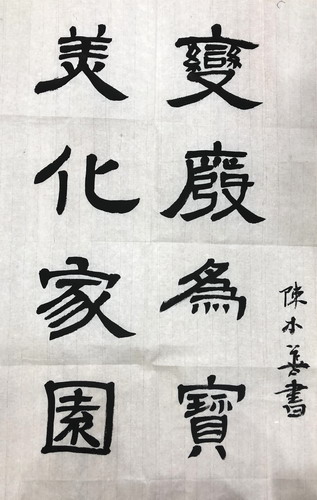 變廢為寶
美化家園
陳木善書